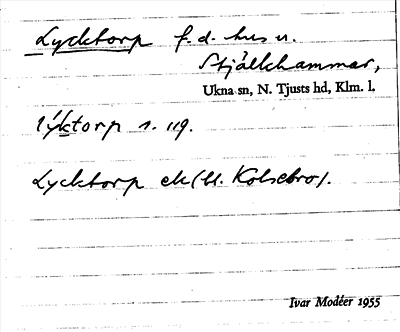 Lycktorp f.d. hus u.
Stjälkhammar,
Ukna sn, N. Tjusts hd, Klm. l.
lýktorp 1. 119.
Lycktorp ek (bl. Kolsebro).
Ivar Modéer 1955